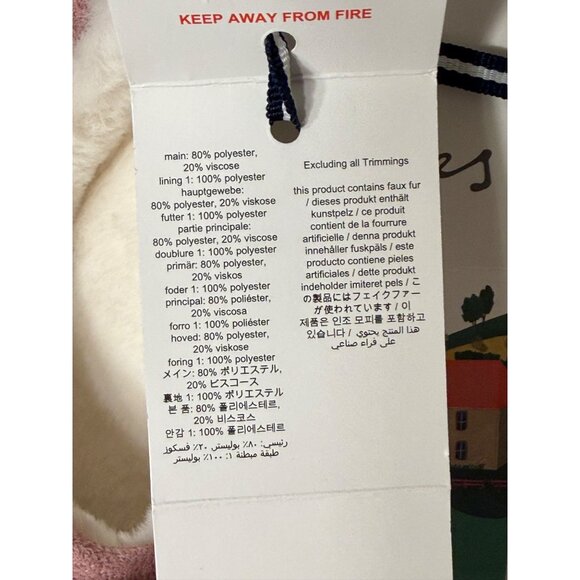 KEEP AWAY FROM FIRE
main: 80% polyester,
20% viscose
lining 1: 100% polyester
hauptgewebe:
80% polyester, 20% viskose
futter 1: 100% polyester
partie principale:
80% polyester, 20% viscose
doublure 1: 100% polyester
primär: 80% polyester,
20% viskos
foder 1: 100% polyester
principal: 80% poliéster,
20% viscosa
forro 1: 100% poliéster
hoved: 80% polyester,
20% viskose
foring 1: 100% polyester
メイン: 80% ポリエステル,
20% ビスコース
裏地 1: 100% ポリエステル
본 품: 80% 폴리에스테르,
20% 비스코스
안감 1: 100% 폴리에스테르
رئيسي: ٨٠٪ بوليستر, ٢٠٪ فسكوز
طبقة مبطنة ١: ١٠٠٪ بوليستر
Excluding all Trimmings
this product contains faux fur
/ dieses produkt enthält
kunstpelz / ce produit
contient de la fourrure
artificielle / denna produkt
innehåller fuskpäls / este
producto contiene pieles
artificiales / dette produkt
indeholder imiteret pels / こ
の製品にはフェイクファー
が使われています / 이
제품은 인조 모피를 포함하고
있습니다 / هذا المنتج يحتوي
على فراء صناعي